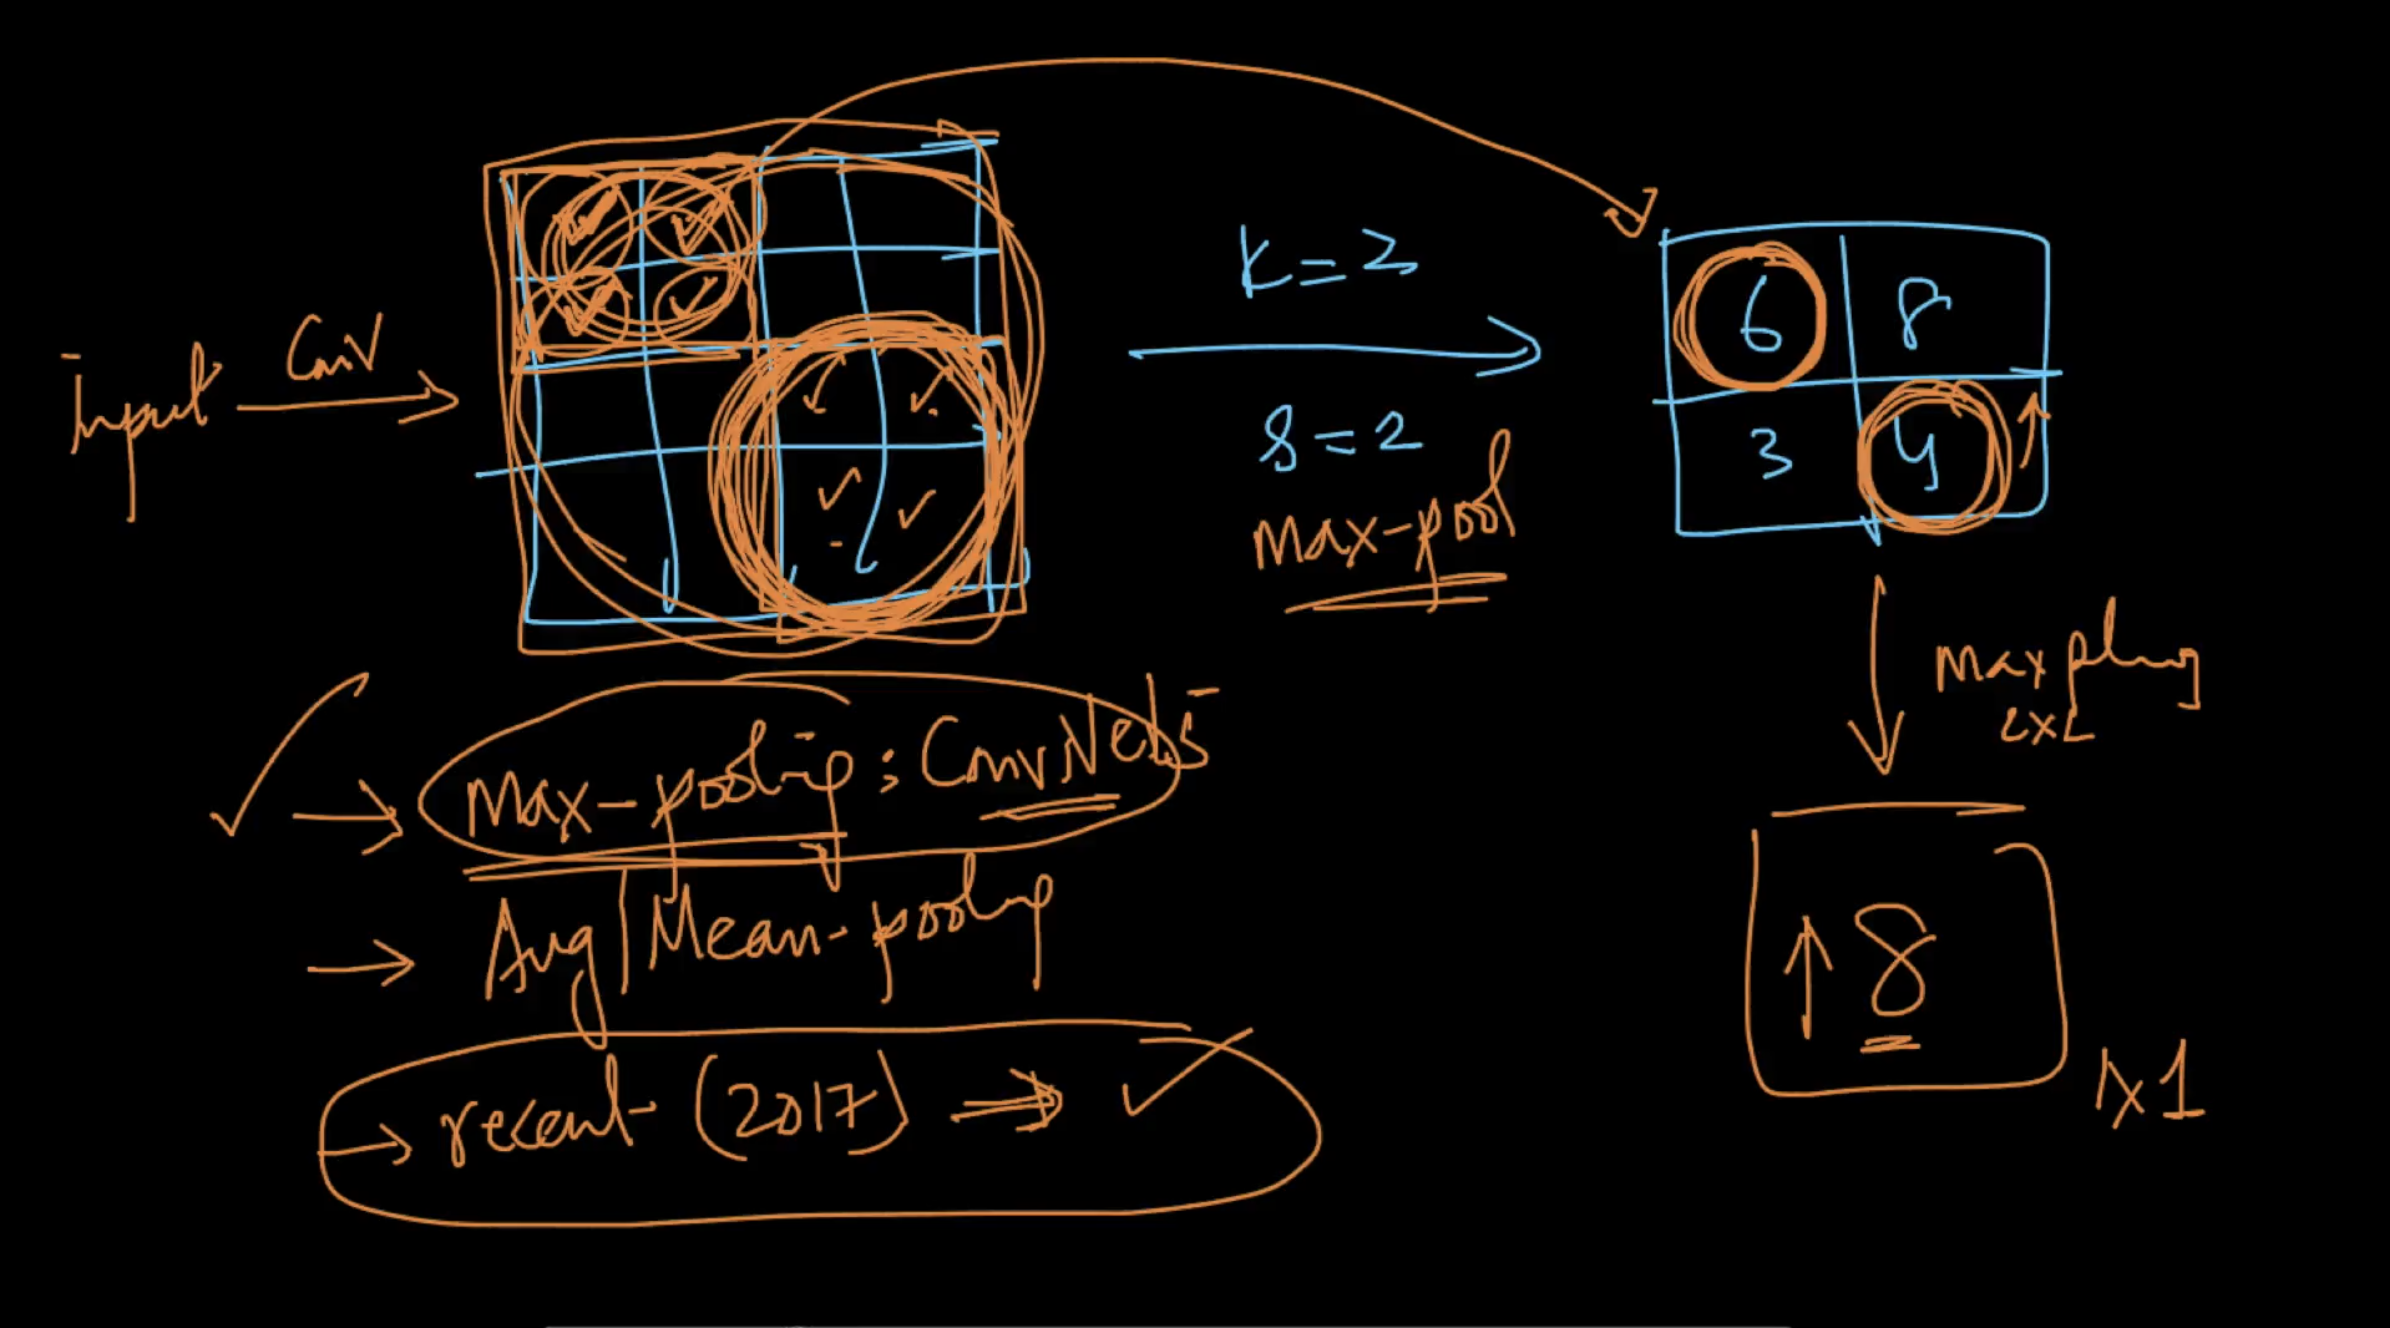 Input
Conv
K=2
S=2
Max-pool
6 8
3 4
Max pling
2x2
8
1x1
Max-pooling : ConvNets
Avg|Mean-pooling
recent (2017)